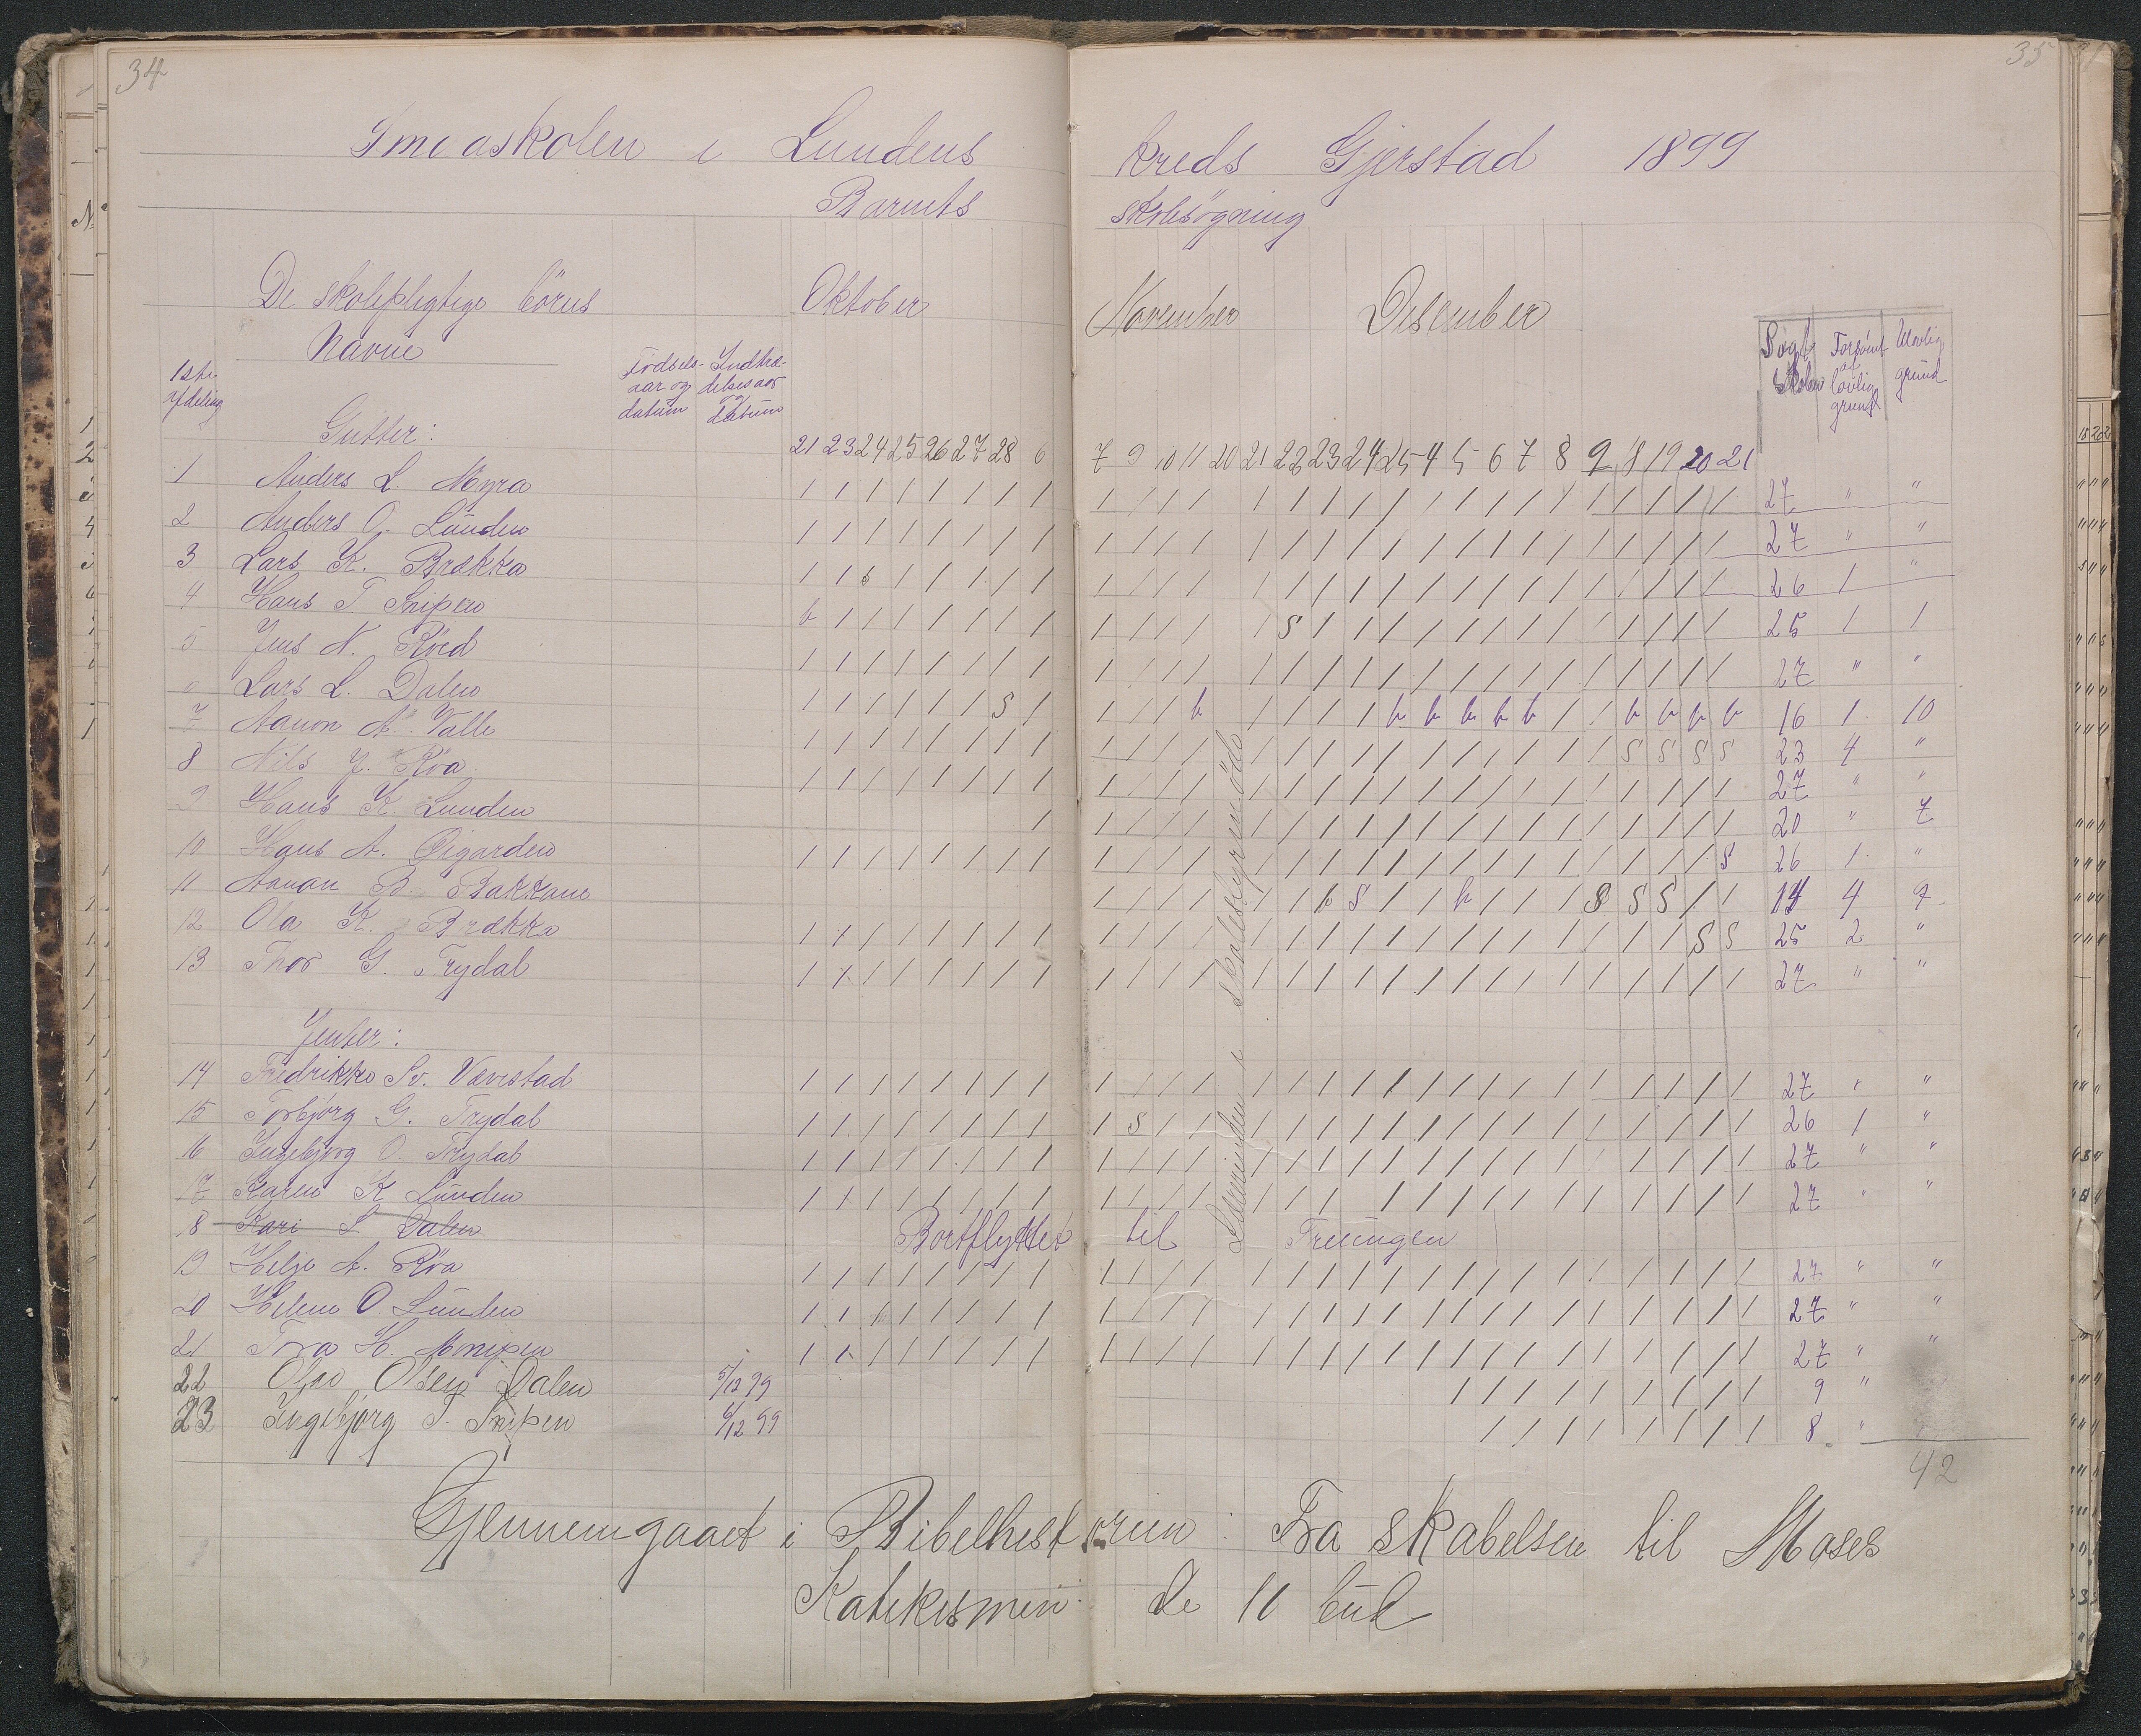 34
35
Smaaskolen i Lundens kreds Gjerstad 1899
Barnets skolesögning
De skolepligtige börns Navne
Oktober November Desember
1ste Afdeling
Födsels-aar og datum
Indtræ-delsesaar og datum
Søgt skolen
Forsømt af lovlig grund
Ulovlig grund
Gutter:
21 23 24 25 26 27 28 6 7 9 10 11 20 21 22 23 24 25 4 5 6 7 8 9 18 19 20 21
1 Anders L. Myra / / / / / / / / / / / / / / / / / / / / / / / / / / / 27 " "
2 Anders O. Lunden / / / / / / / / / / / / / / / / / / / / / / / / / / / 27 " "
3 Lars K. Brækka / / s / / / / / / / / / / / / / / / / / / / / / / / / 26 1 "
4 Hans T. Snipen h / / / / / / / / / / / / s / / / / / / / / / / / / / 25 1 1
5 Jens N. Röed / / / / / / / / / / / / / / / / / / / / / / / / / / / 27 " "
6 Lars L. Dalen / / / / / / s / / / / h / / / / h h h h h / / h h h h 16 1 10
7 Aanon A. Valle / / / / / / / / / / / / / / / / / / / / / / / s s s s 23 4 "
8 Nils J. Röa / / / / / / / / / / / / / / / / / / / / / / / / / / / 27 " "
9 Hans K. Lunden / / / / / / / / / / / / / / / / / / / / 20 " 7
10 Hans A. Eigarden / / / / / / / / / / / / / / / / / / / / / / / / / / s 26 1 "
11 Aanon B. Bakkane / / / / / / h s / / h / / / s s s / / 14 4 9
12 Ola K. Brækka / / / / / / / / / / / / / / / / / / / / / / / / / s s 25 2 "
13 Thor G. Trydal / / / / / / / / / / / / / / / / / / / / / / / / / / / 27 " "
Jenter:
14 Fredrikke Sv. Vævestad / / / / / / / / / / / / / / / / / / / / / / / / / / / 27 " "
15 Torbjörg G. Trydal / / / / / / / / / s / / / / / / / / / / / / / / / / / 26 1 "
16 Ingebjörg O. Trydal / / / / / / / / / / / / / / / / / / / / / / / / / / / 27 " "
17 Karen K Lunden / / / / / / / / / / / / / / / / / / / / / / / / / / / 27 " "
18 Kari L Dalen Bortflyttet til Treungen
19 Helje A. Röa / / / / / / / / / / / / / / / / / / / / / / / / / / / 27 " "
20 Helene O. Lunden / / / / / / / / / / / / / / / / / / / / / / / / / / / 27 " "
21 Tora H. / / / / / / / / / / / / / / / / / / / / / / / / / / / 27 " "
22 Olav Olsen Dalen 5/12 99 / / / / / / / / / 9 "
23 Ingebjörg T. Snipen 6/12 99 / / / / / / / / 8 "
42
i skolestyremöde
Gjennemgaaet i Bibelhistorien: Fra skabelsen til Moses
Katekismen: De 10 bud